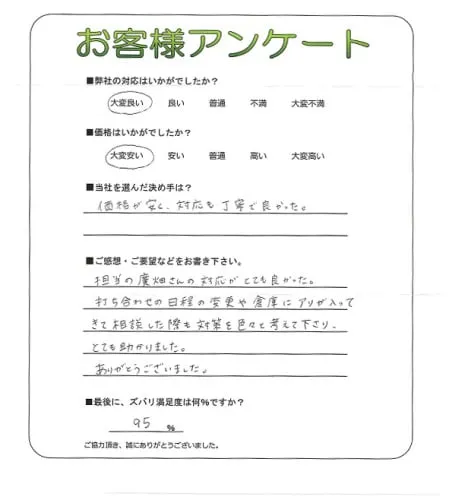 お客様アンケート
■弊社の対応はいかがでしたか？
大変良い 良い 普通 不満 大変不満
■価格はいかがでしたか？
大変安い 安い 普通 高い 大変高い
■当社を選んだ決め手は？
価格が安く、対応も丁寧で良かった。
■ご感想・ご要望などをお書き下さい。
担当の廣畑さんの対応がとても良かった。
打ち合わせの日程の変更や倉庫にアリが入って
きて相談した際も対策を色々と考えて下さり、
とても助かりました。
ありがとうございました。
■最後に、ズバリ満足度は何%ですか？
95 %
ご協力頂き、誠にありがとうございました。